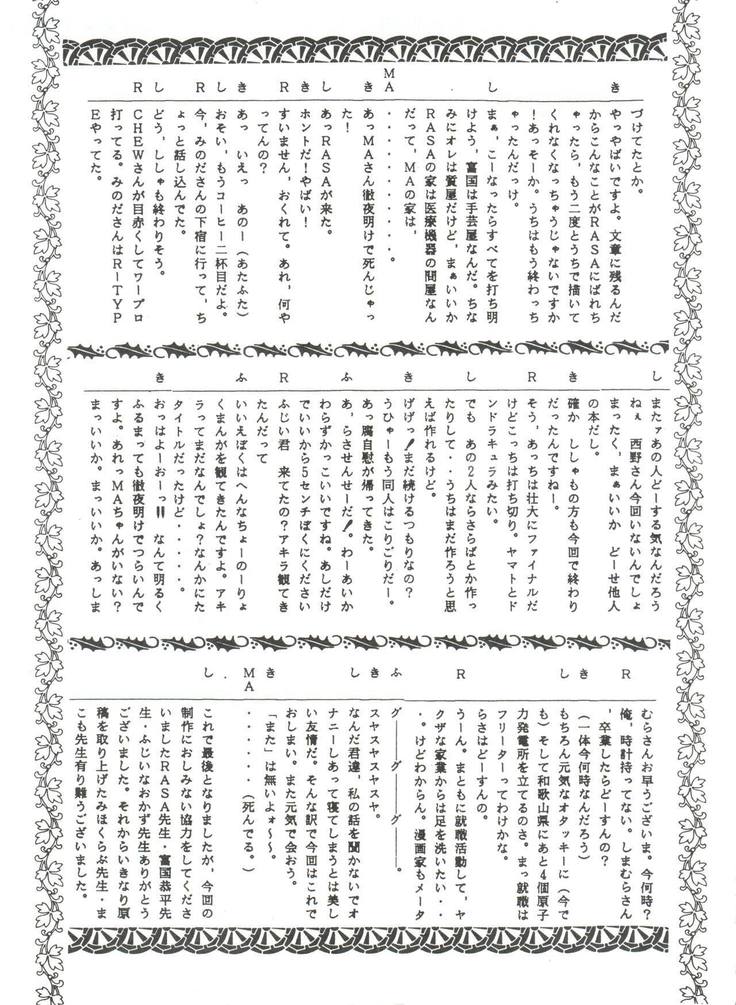 づけてたとか。
き　やっやばいですよ。文章に残るんだ
からこんなことがRASAにばれち
ゃったら、もう二度とうちで描いて
くれなくなっちゃうじゃないですか
！あっそーか。うちはもう終わっち
ゃったんだっけ。
し　まぁ、こーなったらすべてを打ち明
けよう、富国は手芸屋なんだ。ちな
みにオレは質屋だけど、まぁいいか
RASAの家は医療機器の問屋なん
だって、MAの家は、
MA　・・・・・・・・・・・・。
き　あっMAさん徹夜明けで死んじゃっ
た！
し　あっRASAが来た。
き　ホントだ！やばい！
R　すいません、おくれて。あれ、何や
ってんの？
き　あっ　いえっ　あのー（あたふた）
し　おそい、もうコーヒー二杯目だよ。
R　今、みのださんの下宿に行って、ち
ょっと話し込んでた。
し　どう、ししゅも終わりそう。
R　CHEWさんが目赤くしてワープロ
打ってる。みのださんはR－TYP
Eやってた。
し　またァあの人どーする気なんだろう
ねぇ　西野さん今回いないんでしょ
まったく、まぁいいか　どーせ他人
の本だし。
き　確か　ししゅもの方も今回で終わり
だったんですねー。
R　そう、あっちは壮大にファイナルだ
けどこっちは打ち切り。ヤマトとド
ンドラキュラみたい。
し　でも　あの2人ならさらばとか作っ
たりして・・うちはまだ作ろうと思
えば作れるけど。
き　げげっ！まだ続けるつもりなの？
うひゅーもう同人はこりごりだー。
し　あっ腐自慰が帰ってきた。
ふ　あ、らさせんせーだ！。わーあいか
わらずかっこいいですね。あしだけ
でいいから5センチぼくにください
R　ふじい君　来てたの？アキラ観てき
たんだって
ふ　いいえぼくはへんなちょーのーりょ
くまんがを観てきたんですよ。アキ
ラってまだなんでしょ？なんかにた
タイトルだったけど・・・・・。
き　おっはよーおーっ!!　なんて明るく
ふるまっても徹夜明けでつらいんで
すよ。あれっMAちゃんがいない？
まっいいか。まっいいか。あっしま
むらさんお早うございま。今何時？
R　俺、時計持ってない。しまむらさん
、卒業したらどーすんの？
き　（一体今何時なんだろう）
し　もちろん元気なオタッキーに（今で
も）そして和歌山県にあと4個原子
力発電所を立てるのさ。まっ就職は
フリーターってわけかな。
らさはどーすんの。
R　うーん。まともに就職活動して、ヤ
クザな家業からは足を洗いたい・・
・。けどわからん。漫画家もメータ
ふ　グ――グ――グ――。
き　スヤスヤスヤスヤ。
し　なんだ君達、私の話を聞かないでオ
ナニーしあって寝てしまうとは美し
い友情だ。そんな訳で今回はこれで
おしまい。また元気で会おう。
き　「また」は無いよォ～～。
MA　・・・・・・（死んでる。）
し　これで最後となりましたが、今回の
制作におしみない協力をしてくださ
いましたRASA先生・富国恭平先
生・ふじいなおかず先生ありがとう
ございました。それからいきなり原
稿を取り上げたみほくらぶ先生・ま
こも先生有り難うございました。